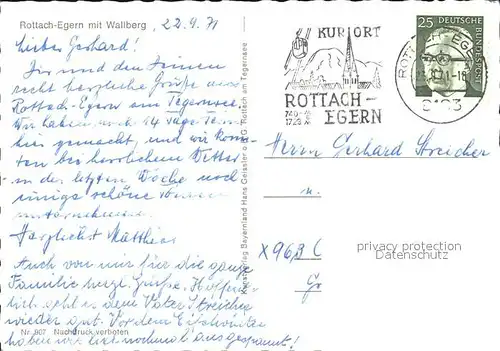 Rottach-Egern mit Wallberg
22.9.71
Lieber Gerhard!
Dir und den Deinen
recht herzliche Grüße aus
Rottach-Egern am Tegernsee.
Wir haben 14 Tage
hier gemacht, und wir konn-
ten bei herrlichem Wetter
in der letzten Woche noch
einige schöne
unternehmen.
Herzlichst Matthias
Auch von mir für die ganze
Familie herzl. Grüße. Hoffent-
lich geht es dem Vater Streicher
wieder gut. Vor dem Eiswinter
haben wir hier nochmal ausgespannt!
Nr. 907 Nachdruck verboten
Kunstverlag Bayernland Hans Geissler oHG. Rottach am Tegernsee
KURORT
ROTTACH-
EGERN
740-
1723 M
ROTTACH-EGERN
8183
25
DEUTSCHE
BUNDESPOST
Herrn Gerhard Streicher
X 963 C
privacy protection
Datenschutz
Gr